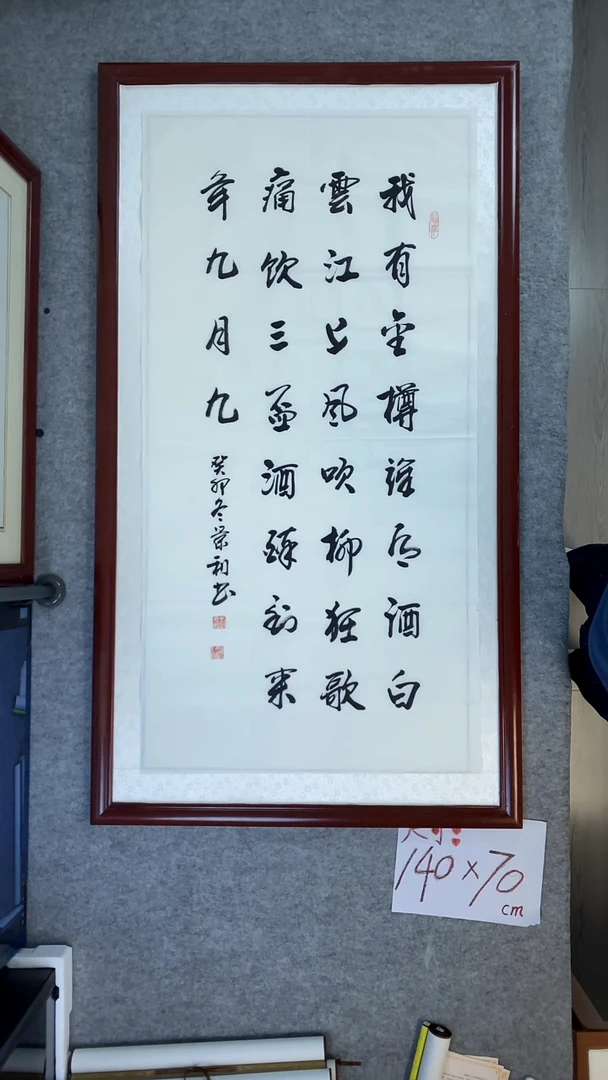 我有金樽谁为酒白
雲江上风吹柳狂歌
痛饮三盏酒醉到来
年九月九
癸卯冬荣初书
140×70
cm